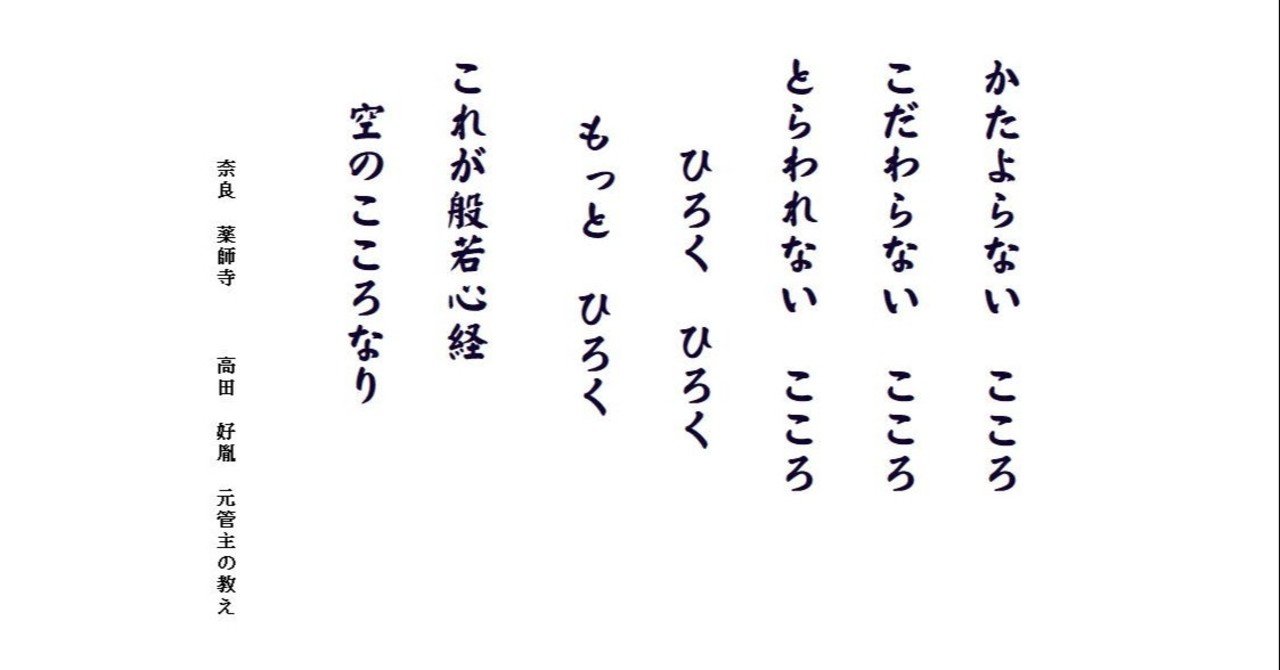 かたよらない　こころ
こだわらない　こころ
とらわれない　こころ
ひろく　ひろく
もっと　ひろく
これが般若心経
空のこころなり
奈良　薬師寺　　　高田　好胤　元管主の教え